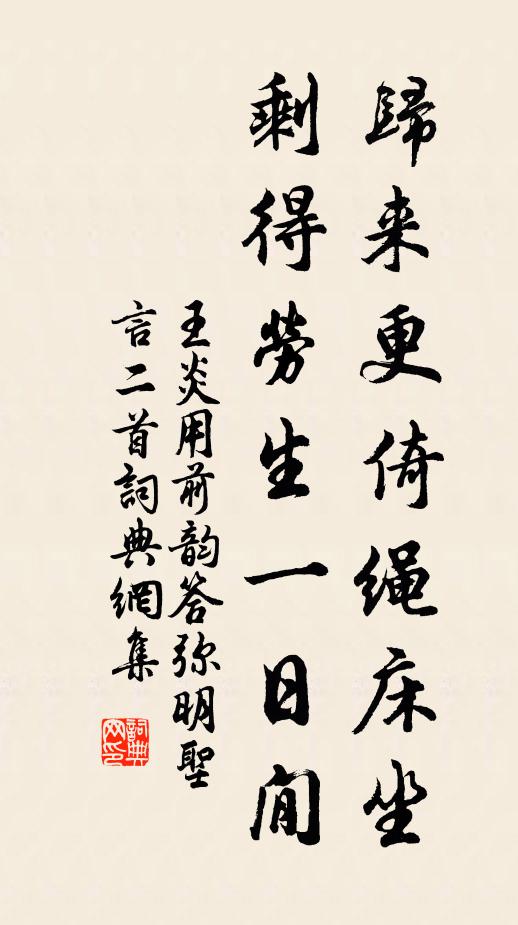 歸来更倚绳床坐
剩得勞生一日间
王炎用前韵答弥明聖
言二首詞典網集
詞典网印